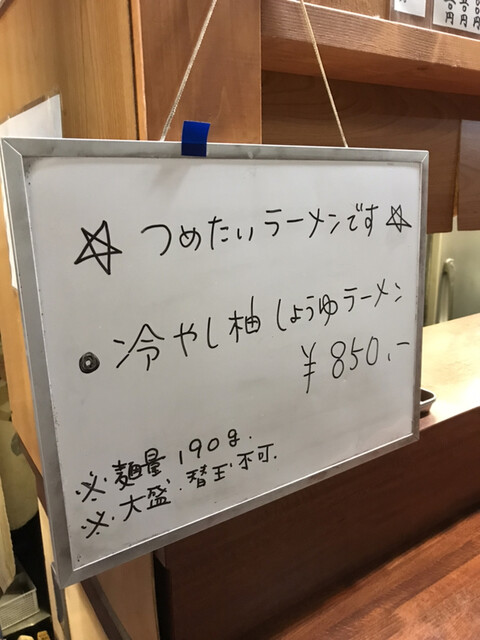 ☆つめたいラーメンです☆
●冷やし柚しょうゆラーメン
¥850.-
※麺量190g.
※大盛.替玉不可.